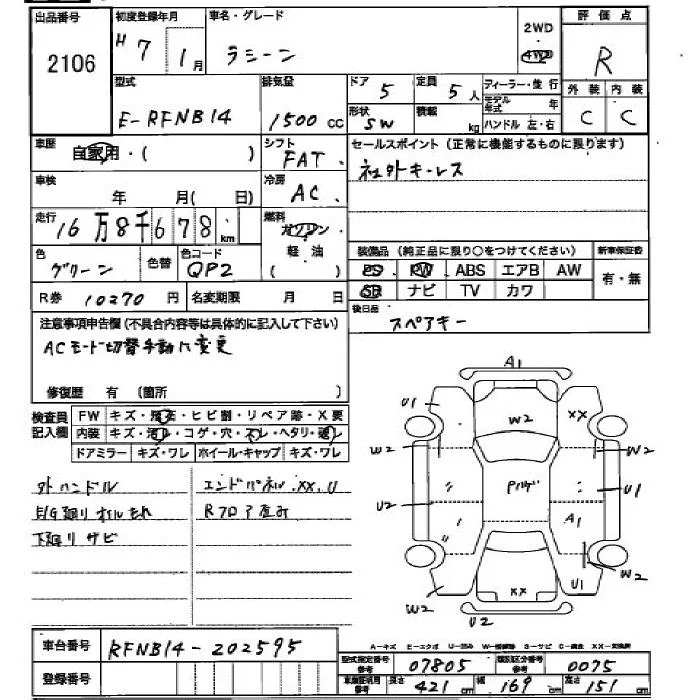 出品番号 初度登録年月 車名・グレード 評価点
2106 H7 1月 ラシーン 2WD 4WD R
型式 排気量 ドア 5 定員 5人 ディーラー・並行 外装 内装
E-RFNB14 1500 CC 形状 SW 積載 kg モデル年式 年 ハンドル 左・右 C C
車歴 自家用・( ) シフト FAT セールスポイント (正常に機能するものに限ります)
社外キーレス
車検 年 月( 日) 冷房 AC
走行 16万8千678km 燃料 ガソリン 軽油 ( )
色 グリーン 色替 色コード QP2
装備品 (純正品に限り○をつけてください) 新車保証書
PS PW ABS エアB AW 有・無
SR ナビ TV カワ
R券 10270円 名変期限 月 日
後日品 スペアキー
注意事項申告欄 (不具合内容等は具体的に記入して下さい)
ACモード切替手動に変更
修復歴 有 (箇所 )
検査員記入欄 FW キズ・飛石・ヒビ割・リペア跡・X要
内装 キズ・汚レ・コゲ・穴・スレ・ヘタリ・
ドアミラー キズ・ワレ ホイール・キャップ キズ・ワレ
外ハンドル エンドパネル XX.U
E/G廻りオイルもれ Rフロア歪み
下廻りサビ
A1
U1 W2 XX
W2 W2
Pルーフ U1
U2 A1
XX U1 W2
W2 U2
車台番号 RFNB14-202595
登録番号
A-キズ E-エクボ U-凹み W-補修跡 S-サビ C-腐食 XX-交換済
型式指定番号 参考 07805 類別区分番号 参考 0075
車庫証明用 参考 長さ 421cm 幅 169cm 高さ 151cm